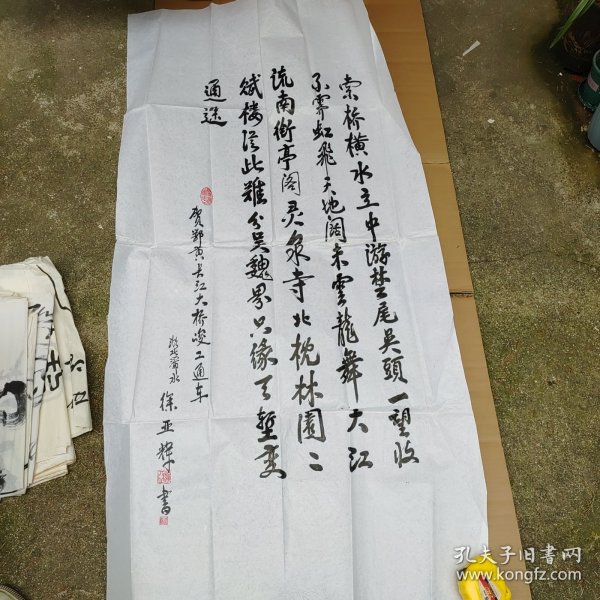 索桥横水立中游楚尾吴頭一望收
不霁虹飛天地阔未雲龍舞大江
流南衡亭阁灵泉寺北枕林園二
赋楼従此難分吴魏界只缘天塹变
通途
贺鄂黄长江大桥竣工通车
湖北浠水
徐亚辉
書
孔夫子旧書网
www.kongfz.com